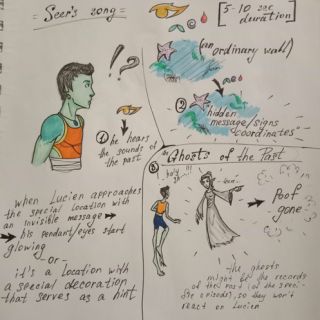 = Seer's song =
!?
5-10 sec
duration
(an
ordinary wall)
① he hears
the sounds of
the past
②
hidden
message/signs
"coordinates"
when Lucien approaches
the special location with
an invisible message
his pendant/eyes start
glowing
-or-
it's a location with
a special decoration
that serves as a hint
the Ghosts of the Past
③
holy
sh..!!!
poof
gone
the ghosts
might be the records
of the past (in the
episode), so they won't
react on Lucien